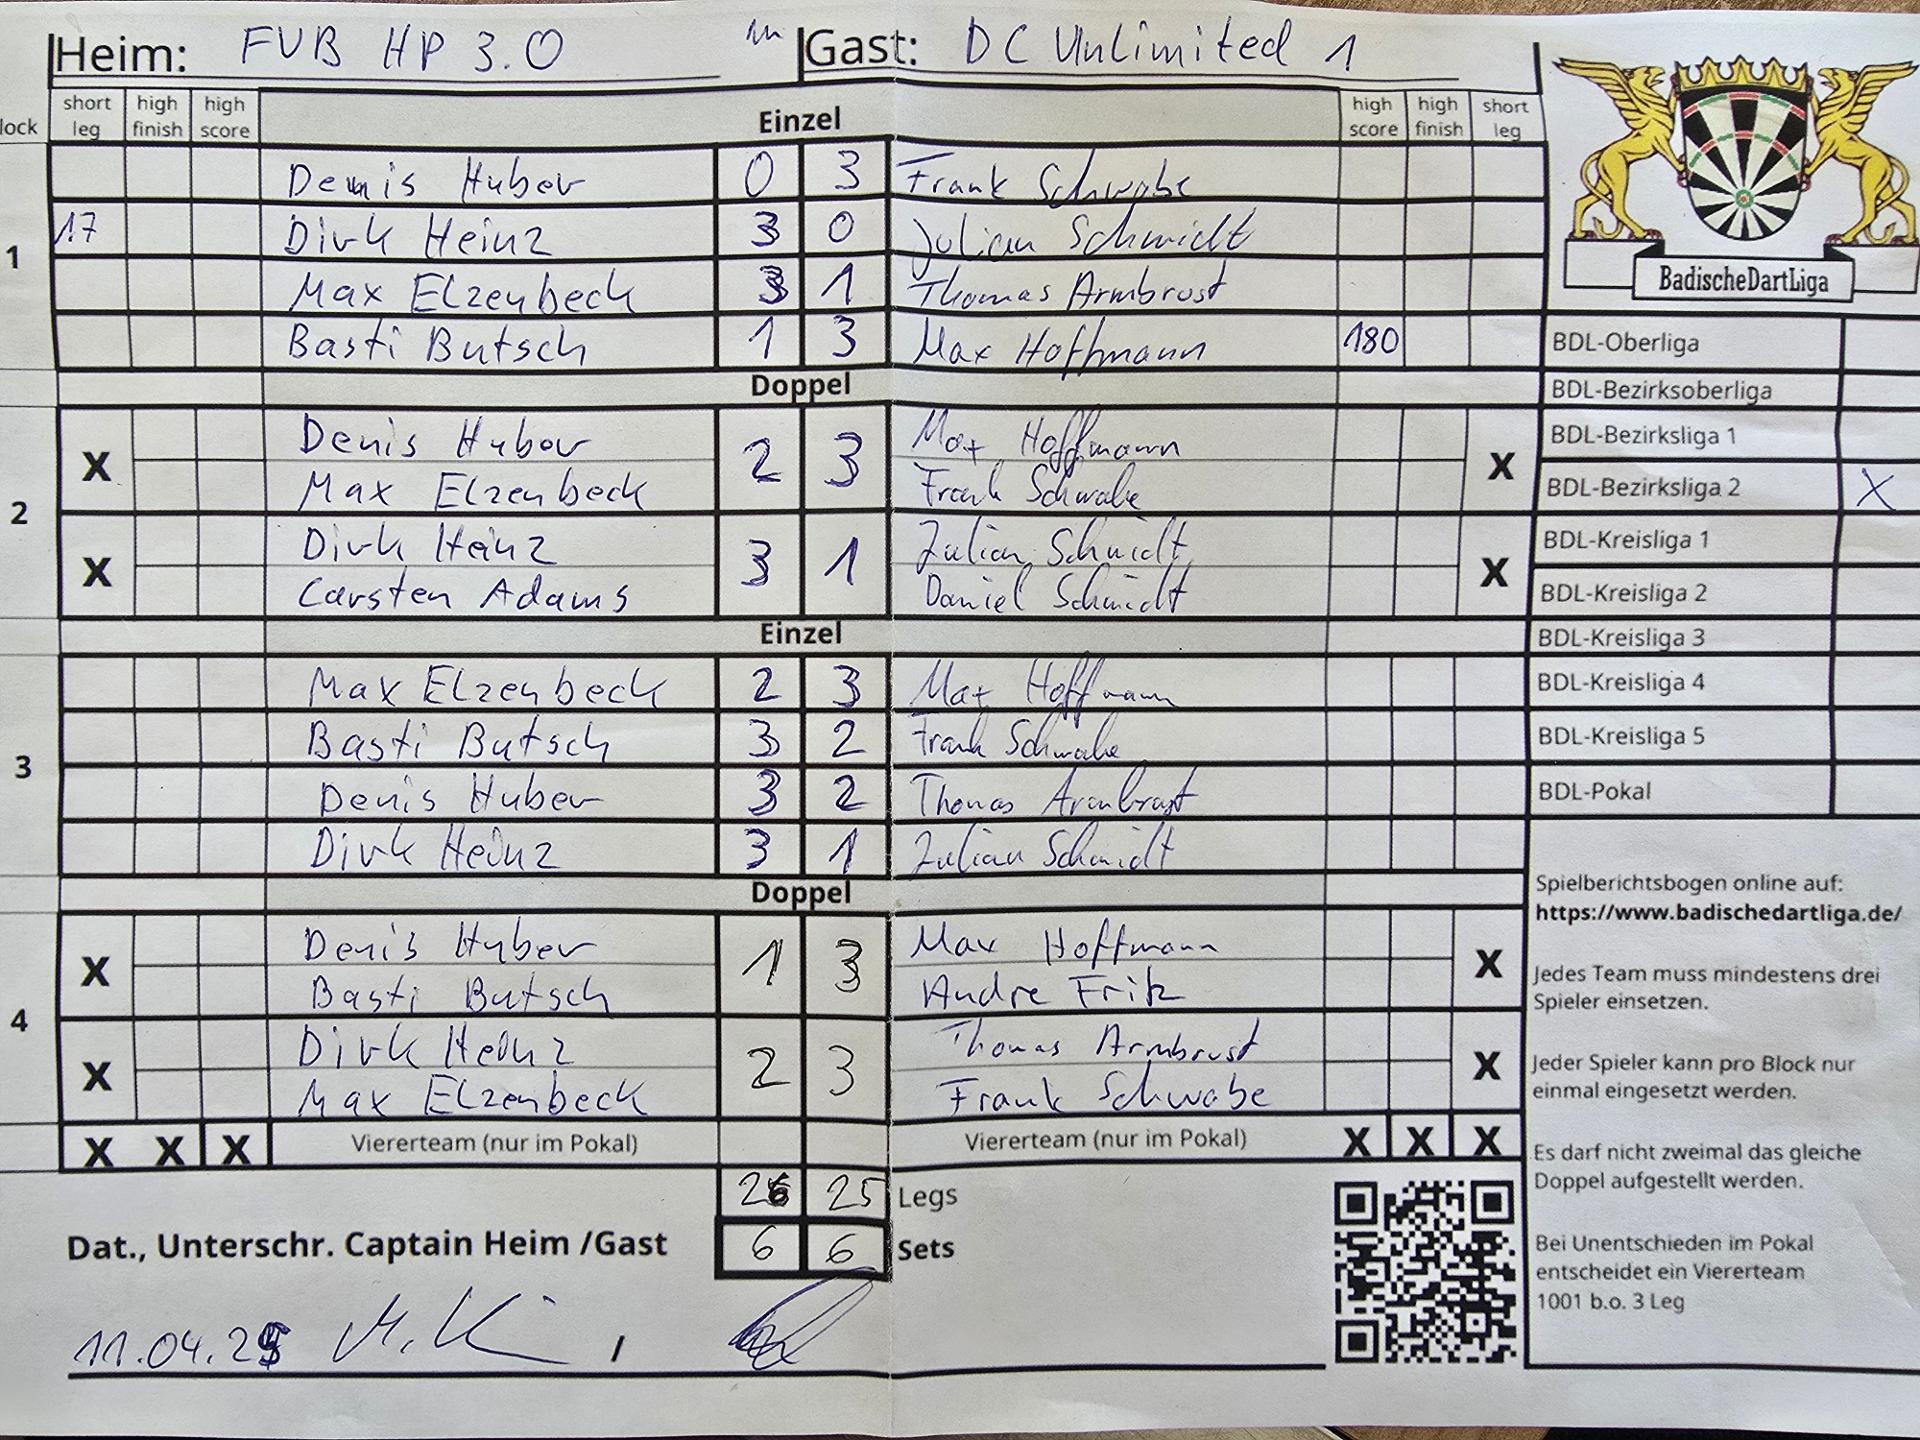 Heim: FVB HP 3.0 Gast: DC Unlimited 1
lock short leg high finish high score Einzel high score high finish short leg
1
Dennis Huber 0 3 Frank Schwabe
17 Dirk Heinz 3 0 Julian Schmidt
Max Elzenbeck 3 1 Thomas Armbrust
Basti Butsch 1 3 Max Hoffmann 180
Doppel
2
X Denis Huber 2 3 Max Hoffmann X
Max Elzenbeck Frank Schwabe
X Dirk Heinz 3 1 Julian Schmidt X
Carsten Adams Daniel Schmidt
Einzel
3
Max Elzenbeck 2 3 Max Hoffmann
Basti Butsch 3 2 Frank Schwabe
Denis Huber 3 2 Thomas Armbrust
Dirk Heinz 3 1 Julian Schmidt
Doppel
4
X Denis Huber 1 3 Max Hoffmann X
Basti Butsch Andre Fritz
X Dirk Heinz 2 3 Thomas Armbrust X
Max Elzenbeck Frank Schwabe
X X X Viererteam (nur im Pokal) Viererteam (nur im Pokal) X X X
26 25 Legs
Dat., Unterschr. Captain Heim /Gast 6 6 Sets
11.04.25 /
BadischeDartLiga
BDL-Oberliga
BDL-Bezirksoberliga
BDL-Bezirksliga 1
BDL-Bezirksliga 2 X
BDL-Kreisliga 1
BDL-Kreisliga 2
BDL-Kreisliga 3
BDL-Kreisliga 4
BDL-Kreisliga 5
BDL-Pokal
Spielberichtsbogen online auf:
https://www.badischedartliga.de/
Jedes Team muss mindestens drei
Spieler einsetzen.
Jeder Spieler kann pro Block nur
einmal eingesetzt werden.
Es darf nicht zweimal das gleiche
Doppel aufgestellt werden.
Bei Unentschieden im Pokal
entscheidet ein Viererteam
1001 b.o. 3 Leg